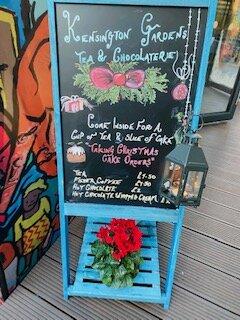 Kensington Gardens
Tea & Chocolaterie
Come Inside For A
Cup of Tea & Slice of Cake
"Taking Christmas
Cake Orders"
Tea £1.50
Filter Coffee £1.50
Hot Chocolate £2
Hot Chocolate Whipped Cream